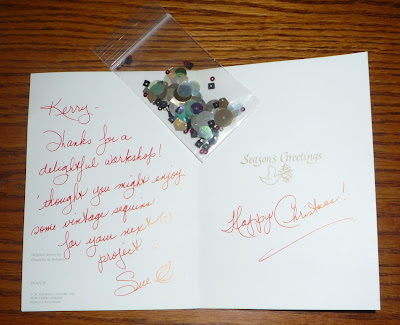 Kerry,
Thanks for a
delightful workshop!
'thought you might enjoy
some vintage sequins
for your next (?)
project
Sue
Season's Greetings
Happy Christmas!